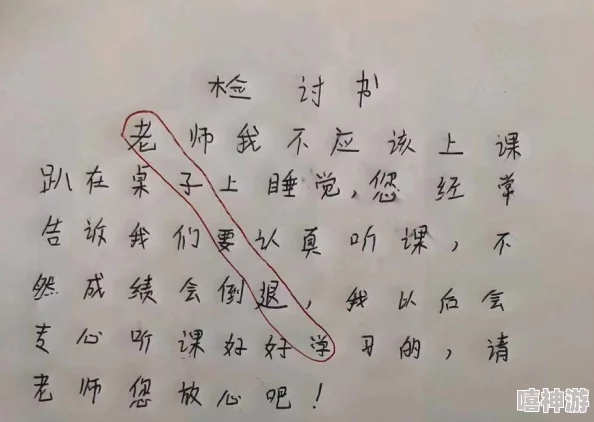 检讨书
老师我不应该上课
趴在桌子上睡觉，您经常
告诉我们要认真听课，不
然成绩会倒退，我以后会
专心听课好好学习的，请
老师您放心吧！
嘻神游